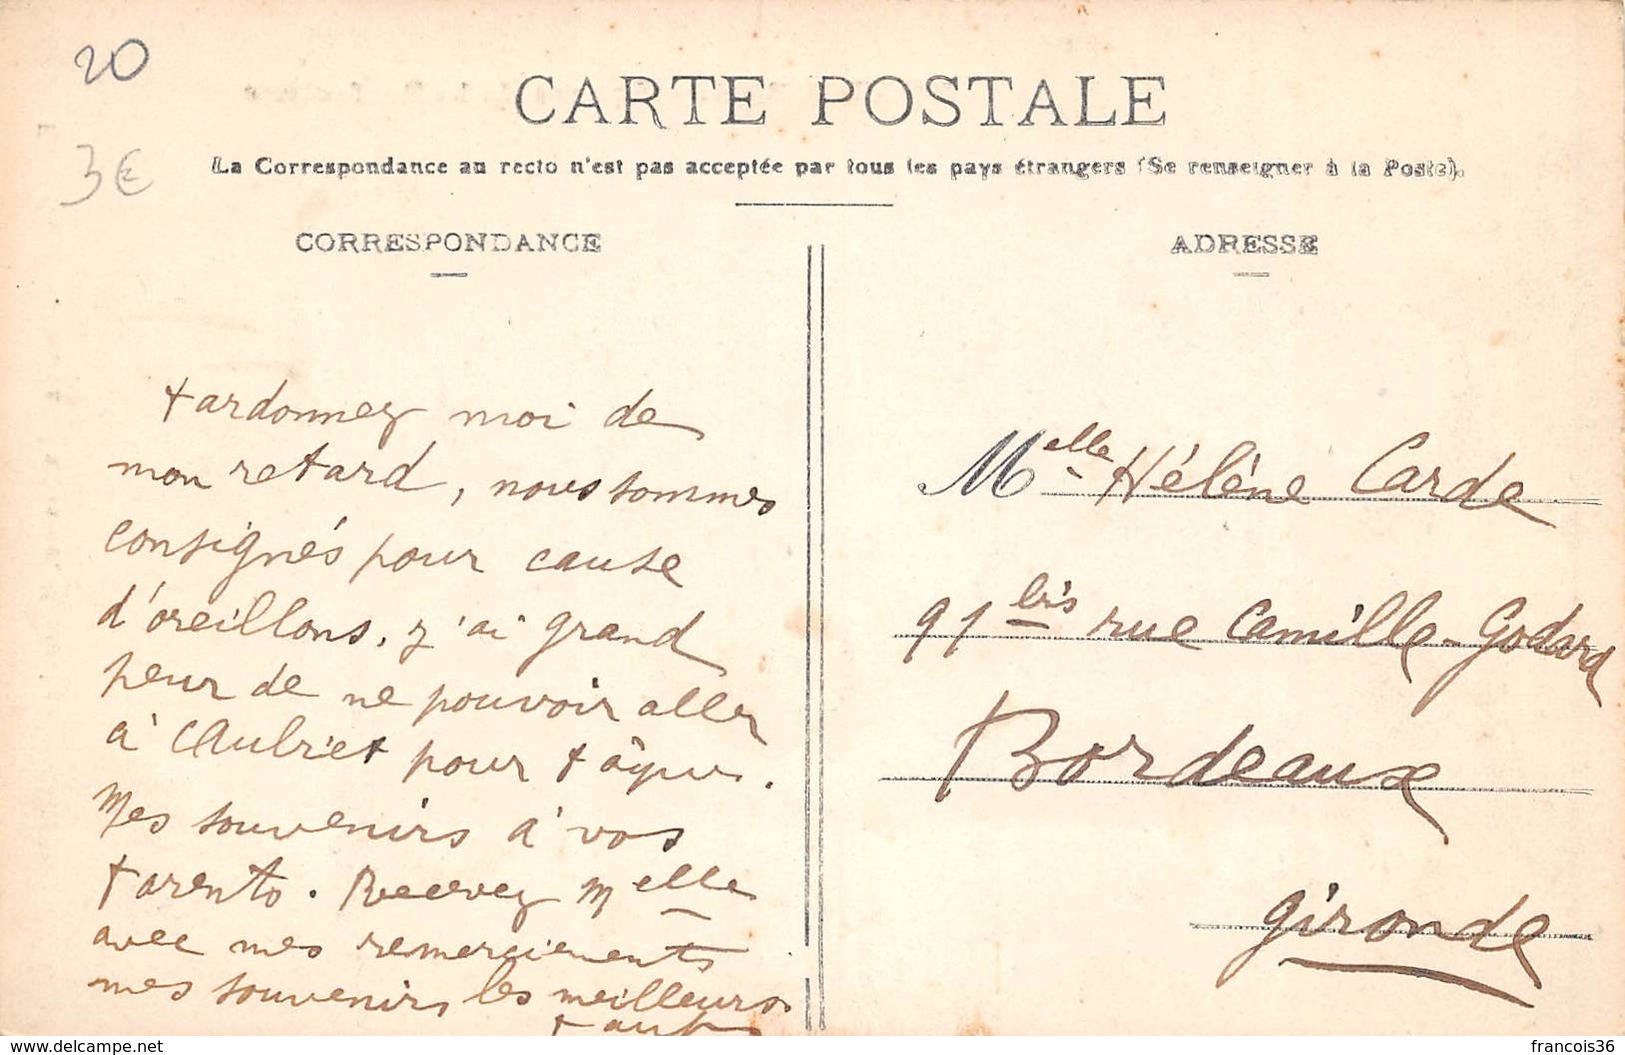 20
3€
CARTE POSTALE
La Correspondance au recto n'est pas acceptée par tous les pays étrangers (Se renseigner à la Poste).
CORRESPONDANCE
Pardonnez moi de
mon retard, nous sommes
consignés pour cause
d'oreillons. J'ai grand
peur de ne pouvoir aller
à Caubriet pour Pâques.
Mes souvenirs à vos
Parents. Recevez Melle
avec mes remerciements
mes souvenirs les meilleurs
ADRESSE
Melle Hélène Carde
91 bis rue Camille-Godard
Bordeaux
Gironde
www.delcampe.net
francois36